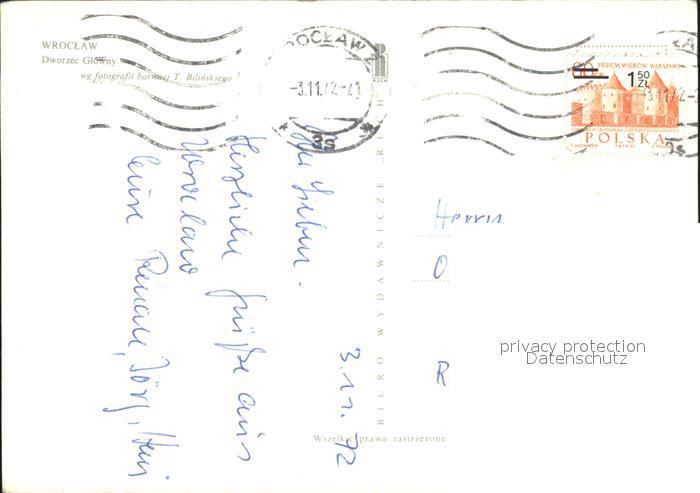 WROCŁAW
Dworzec Główny
wg fotografii barwnej T. Bilińskiego
WROCŁAW 2
-3.11.72-21
* 2s *
SIEDEM WIEKÓW WARSZAWY
60 GR
1 50 ZŁ
POLSKA
-3.11.72-
2s
RUCH
BIURO WYDAWNICZE „RUCH”
3.11.72
Ihr Lieben.
Herzliche Grüße aus
Wroclaw
Renate, Jörg,
Herrn
O
R
privacy protection
Datenschutz
Wszelkie prawa zastrzeżone